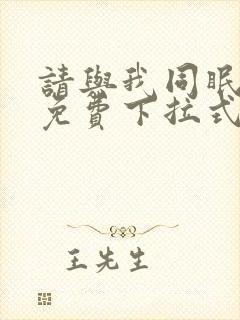 請與我同眠
免費下拉式
王先生